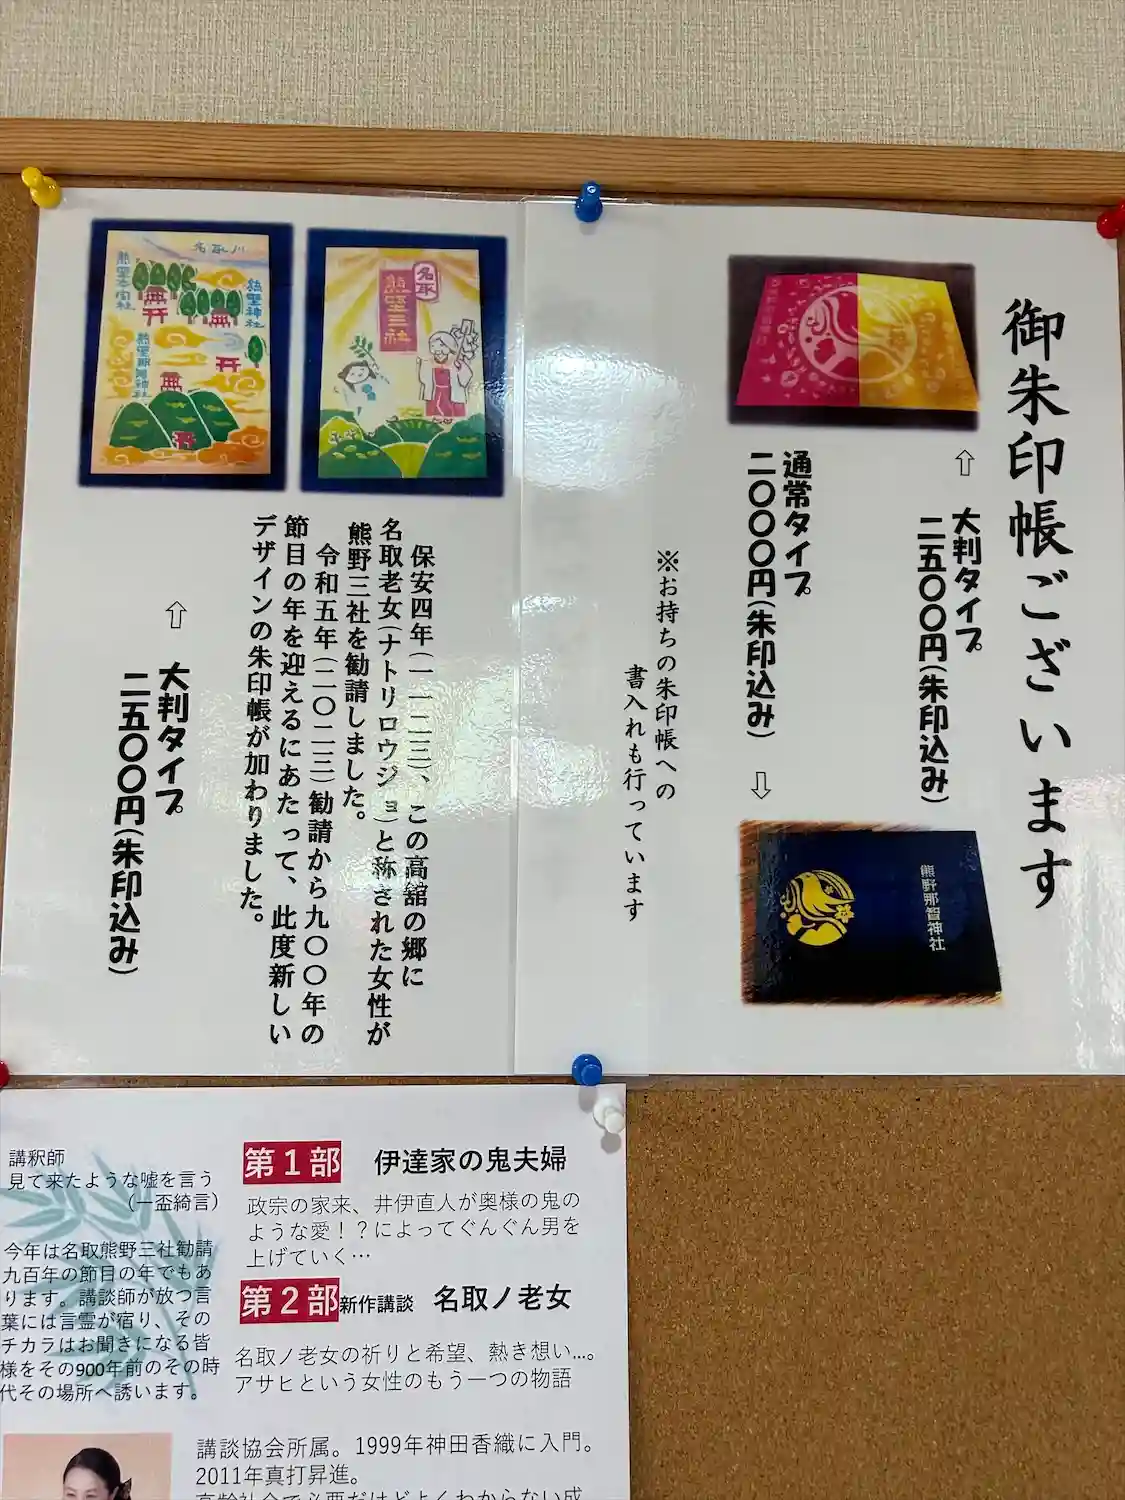 御朱印帳ございます
⇧ 大判タイプ
二五〇〇円(朱印込み)
通常タイプ
二〇〇〇円(朱印込み) ⇩
熊野那智神社
※お持ちの朱印帳への
書入れも行っています
名取
熊野三社
名取川
熊野神社
熊野本宮社
熊野那智神社
保安四年(一一二三)、この高舘の郷に
名取老女(ナトリロウジョ)と称された女性が
熊野三社を勧請しました。
令和五年(二〇二三)勧請から九〇〇年の
節目の年を迎えるにあたって、此度新しい
デザインの朱印帳が加わりました。
⇧ 大判タイプ
二五〇〇円(朱印込み)
講釈師
見て来たような嘘を言う
(一盃綺言)
今年は名取熊野三社勧請
九百年の節目の年でもあ
ります。講談師が放つ言
葉には言霊が宿り、その
チカラはお聞きになる皆
様をその900年前のその時
代その場所へ誘います。
第1部 伊達家の鬼夫婦
政宗の家来、井伊直人が奥様の鬼の
ような愛!?によってぐんぐん男を
上げていく…
第2部 新作講談 名取ノ老女
名取ノ老女の祈りと希望、熱き想い…。
アサヒという女性のもう一つの物語
講談協会所属。1999年神田香織に入門。
2011年真打昇進。
高齢社会で必要だけどよくわからない成